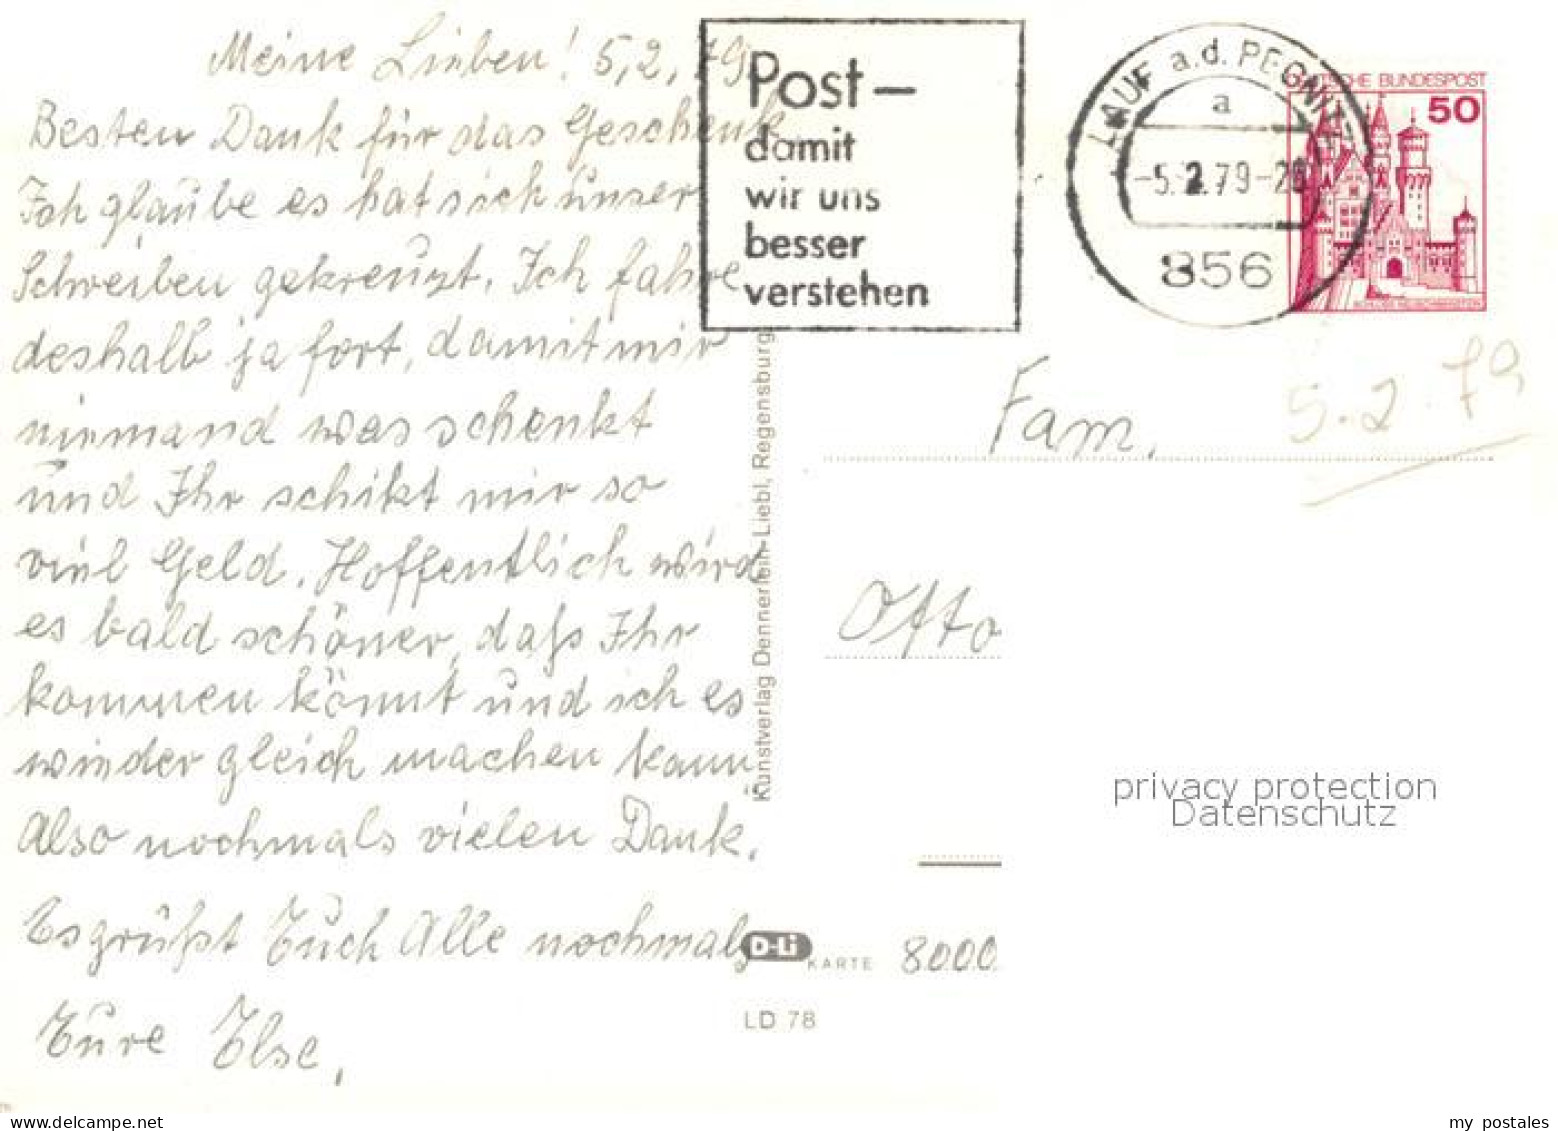 Meine Lieben! 5,2,79
Besten Dank für das Geschenk.
Ich glaube es hat sich unser
Schreiben gekreuzt. Ich fahre
deshalb ja fort, damit mir
niemand was schenkt
und Ihr schikt mir so
viel Geld. Hoffentlich wird
es bald schöner, daß Ihr
kommen könnt und ich es
wieder gleich machen kann.
Also nochmals vielen Dank.
Es grüßt Euch Alle nochmals
Eure Else,
Post–
damit
wir uns
besser
verstehen
LAUF a.d. PEGNITZ
a
-5.2.79-20
856
DEUTSCHE BUNDESPOST
50
5.2.79
Fam.
Otto
8000
Kunstverlag Dennerlein-Liebl, Regensburg
D-Li KARTE
LD 78
privacy protection
Datenschutz
www.delcampe.net
my_postales